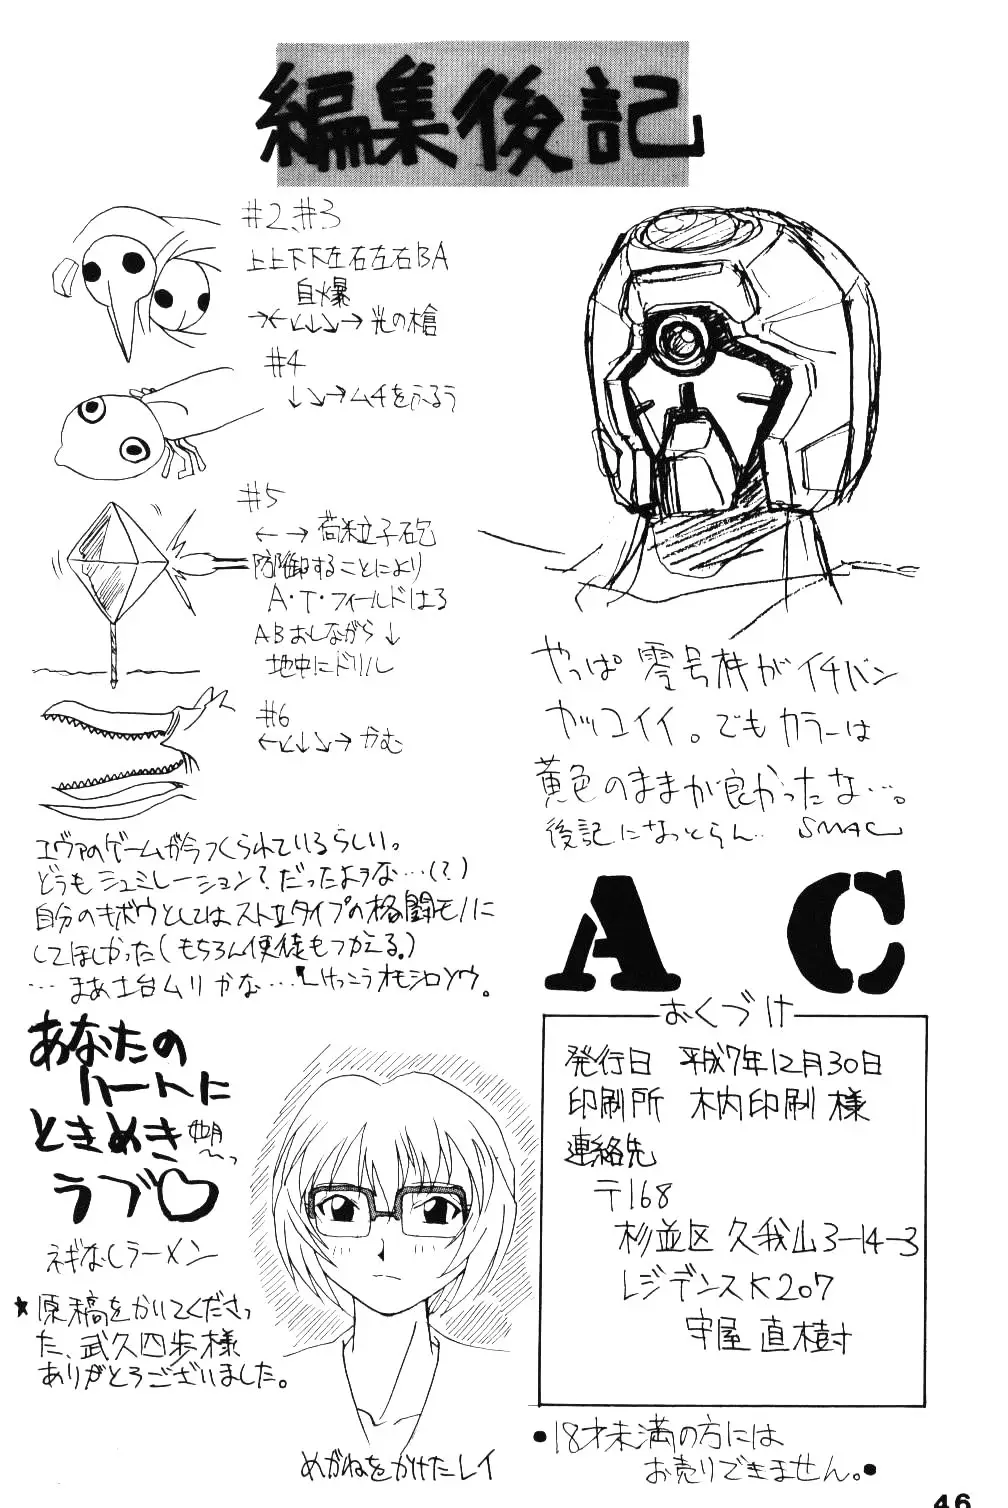 編集後記
#2,#3
上上下下左右左右BA
自爆
→←↙↓↘→光の槍
#4
↓↘→ムチをふるう
#5
←→荷粒子砲
防御することにより
A・T・フィールドはる
ABおしながら↓
地中にドリル
#6
←↙↓↘→かむ
エヴァのゲームが今つくられているらしい。
どうもシュミレーション?だったよヲな…(?)
自分のキボウとしてはストIIタイプの格闘モノに
してほしかった(もちろん使徒もつかえる。)
…まあ土台ムリかな…
けっこうオモシロソウ。
やっぱ零号機がイチバン
カッコイイ。でもカラーは
黄色のままが良かったな…。
後記になっとらん… SMAC
AC
あなたの
ハートに
ときめき
ラブ♡
ネギなしラーメン
★原稿をかいてくださっ
た、武久四歩様
ありがとうございました。
めがねをかけたレイ
おくづけ
発行日 平成7年12月30日
印刷所 木内印刷様
連絡先
〒168
杉並区久我山3-14-3
レジデンスK207
守屋直樹
●18才未満の方には
お売りできません。●
46